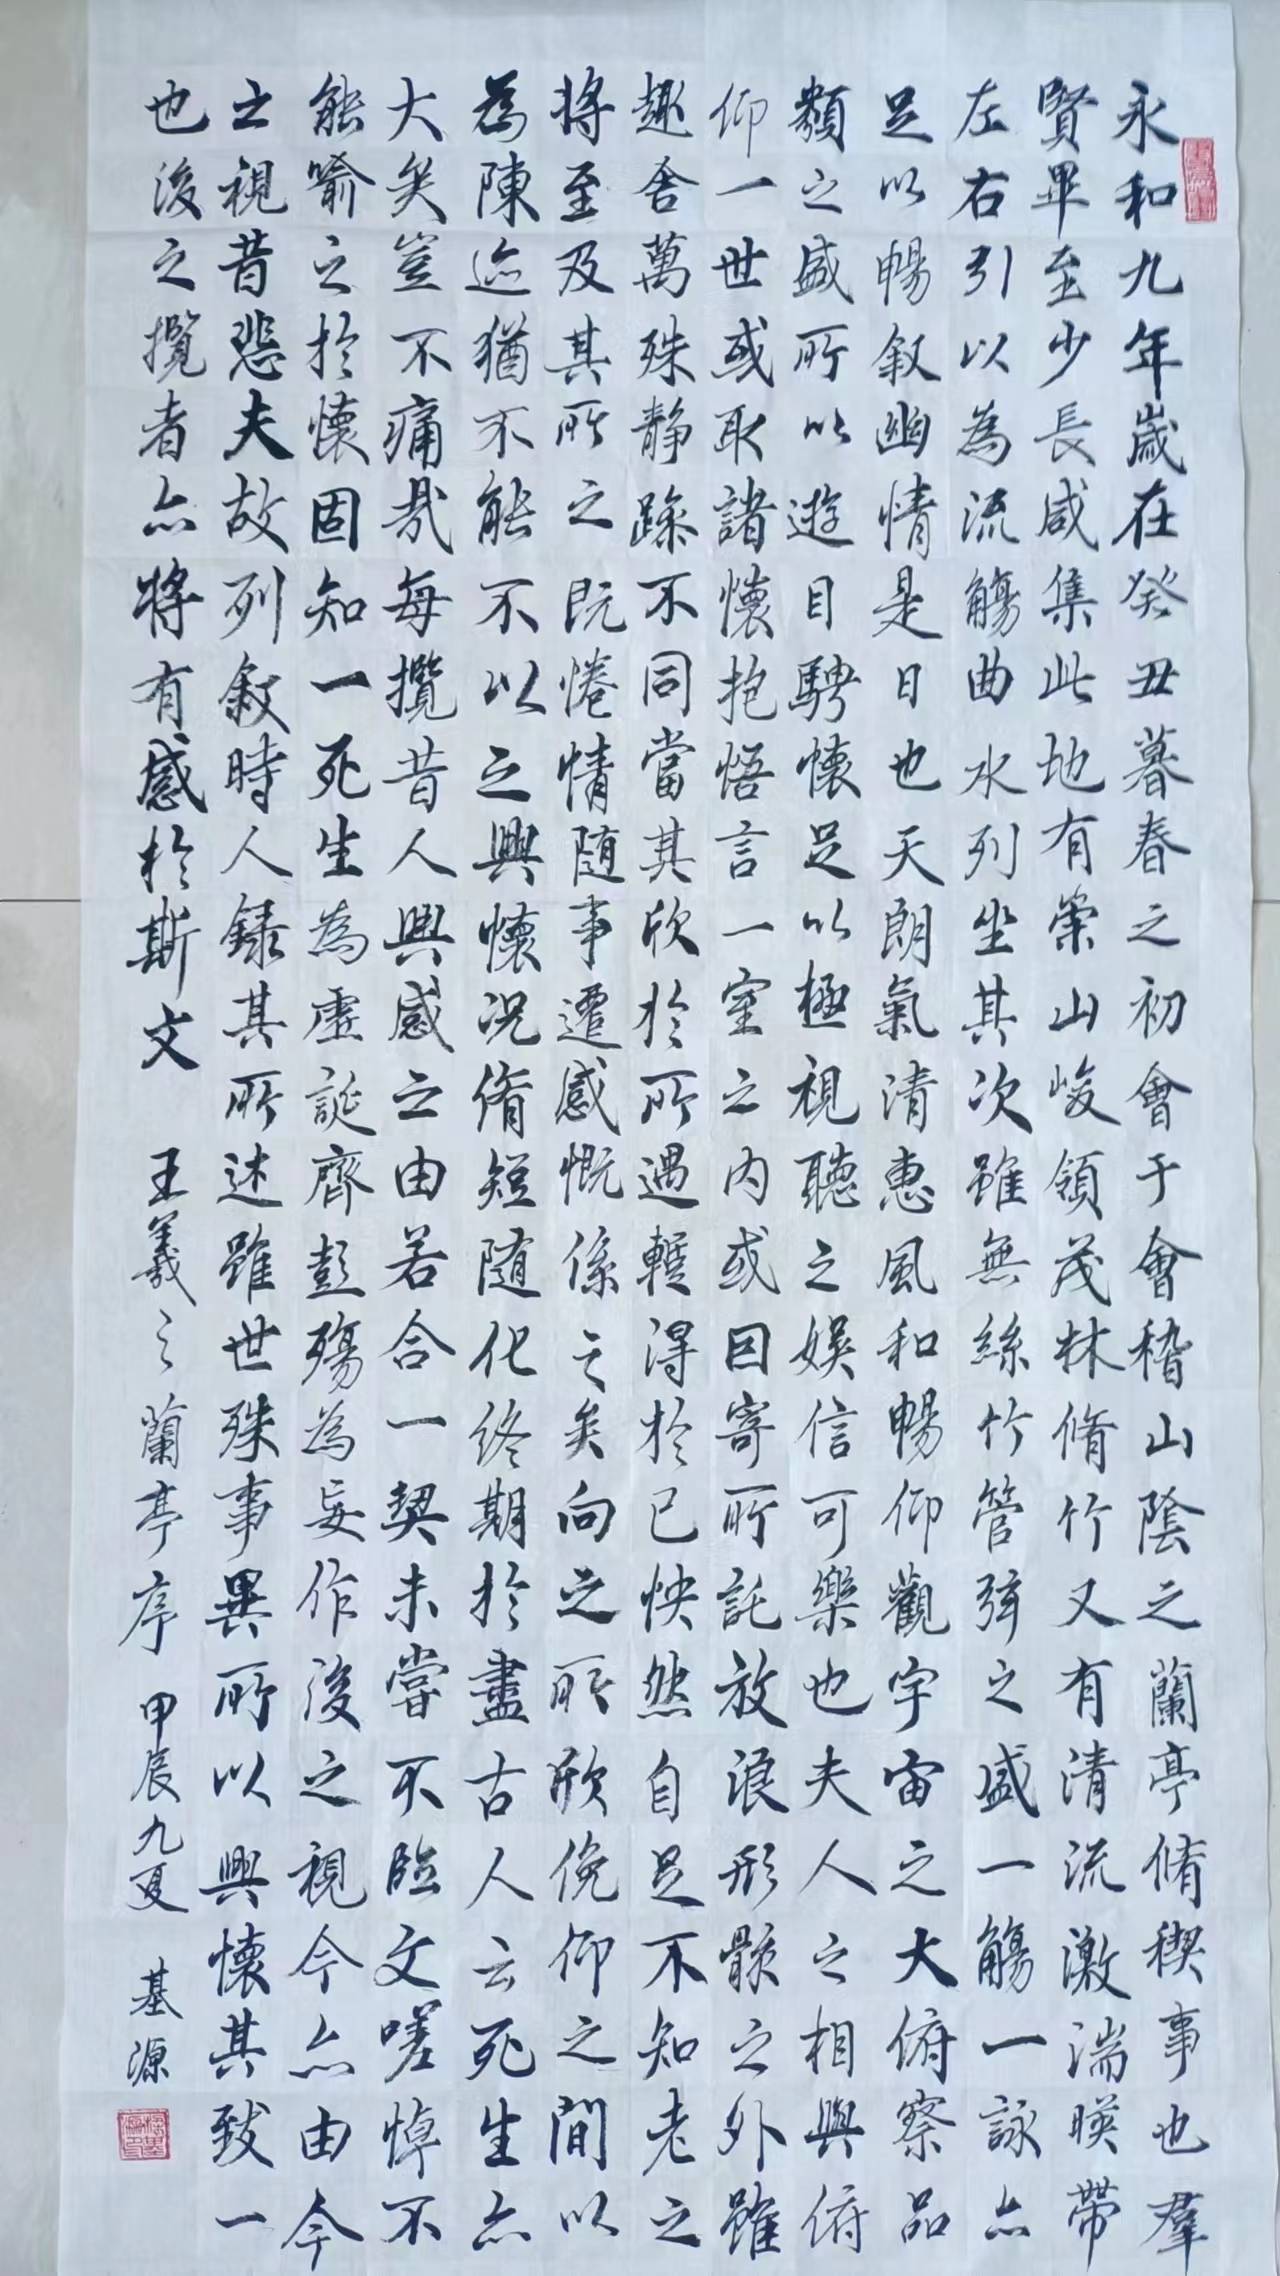 永和九年歲在癸丑暮春之初會于會稽山陰之蘭亭脩稧事也羣
賢畢至少長咸集此地有崇山峻領茂林脩竹又有清流激湍暎帶
左右引以為流觴曲水列坐其次雖無絲竹管弦之盛一觴一詠亦
足以暢敘幽情是日也天朗氣清惠風和暢仰觀宇宙之大俯察品
類之盛所以遊目騁懷足以極視聽之娛信可樂也夫人之相與俯
仰一世或取諸懷抱悟言一室之內或因寄所託放浪形骸之外雖
趣舍萬殊靜躁不同當其欣於所遇蹔得於己怏然自足不知老之
將至及其所之既惓情隨事遷感慨係之矣向之所欣俛仰之間以
為陳迹猶不能不以之興懷況脩短隨化終期於盡古人云死生亦
大矣豈不痛哉每攬昔人興感之由若合一契未嘗不臨文嗟悼不
能喻之於懷固知一死生為虛誕齊彭殤為妄作後之視今亦由今
之視昔悲夫故列敘時人錄其所述雖世殊事異所以興懷其致一
也後之攬者亦將有感於斯文 王羲之蘭亭序 甲辰九夏 基源